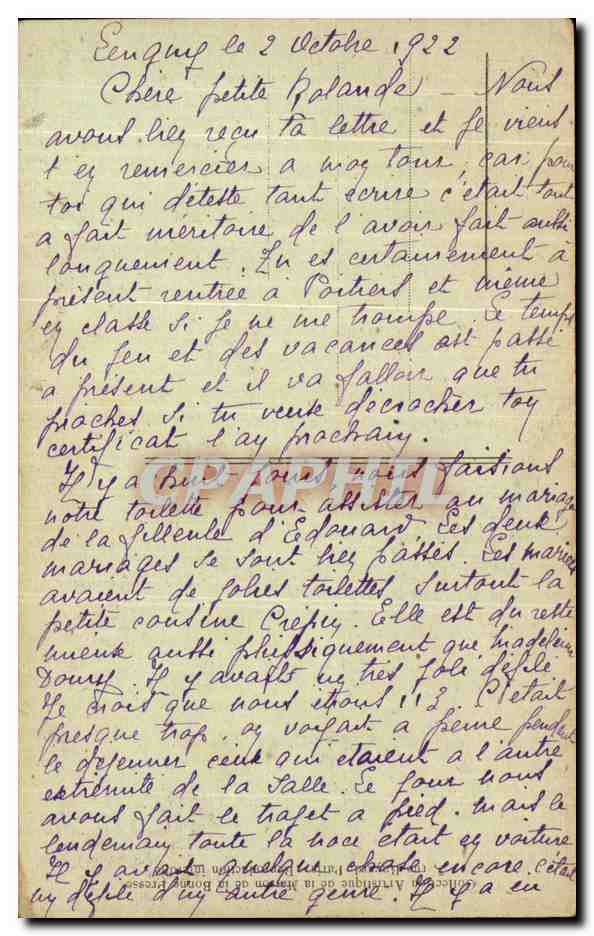 le 2 Octobre 1922
Chère petite Rolande - Nous
avons bien reçu ta lettre et je viens
t en remercier a mon tour, car pour
toi qui déteste tant écrire c'était tout
a fait méritoire de l'avoir fait aussi
longuement. Tu es certainement à
présent rentrée à Poitiers et même
en classe si je ne me trompe. Le temps
du jeu et des vacances est passé
a présent et il va falloir que tu
pioches si tu veux décrocher ton
certificat l'an prochain.
Il y a huit jours nous faisions
notre toilette pour assister au mariage
de la filleule d'Edouard Les deux
mariages se sont bien passés. Les mariées
avaient de jolies toilettes surtout la
petite cousine Crépin. Elle est du reste
mieux aussi phisiquement que Madeleine
Il y avait un très joli défilé
Je crois que nous étions 113. C'était
presque trop. on voyait a peine pendant
le déjeuner ceux qui étaient a l'autre
extrémité de la salle. Le jour nous
avons fait le trajet a pied. mais le
lendemain toute la noce était en voiture
Il y avait quelque chose encore. c'était
un défilé d'un autre genre. Il y a eu
CPAPHIL
Collection Artistique de la Maison de la Bonne Presse